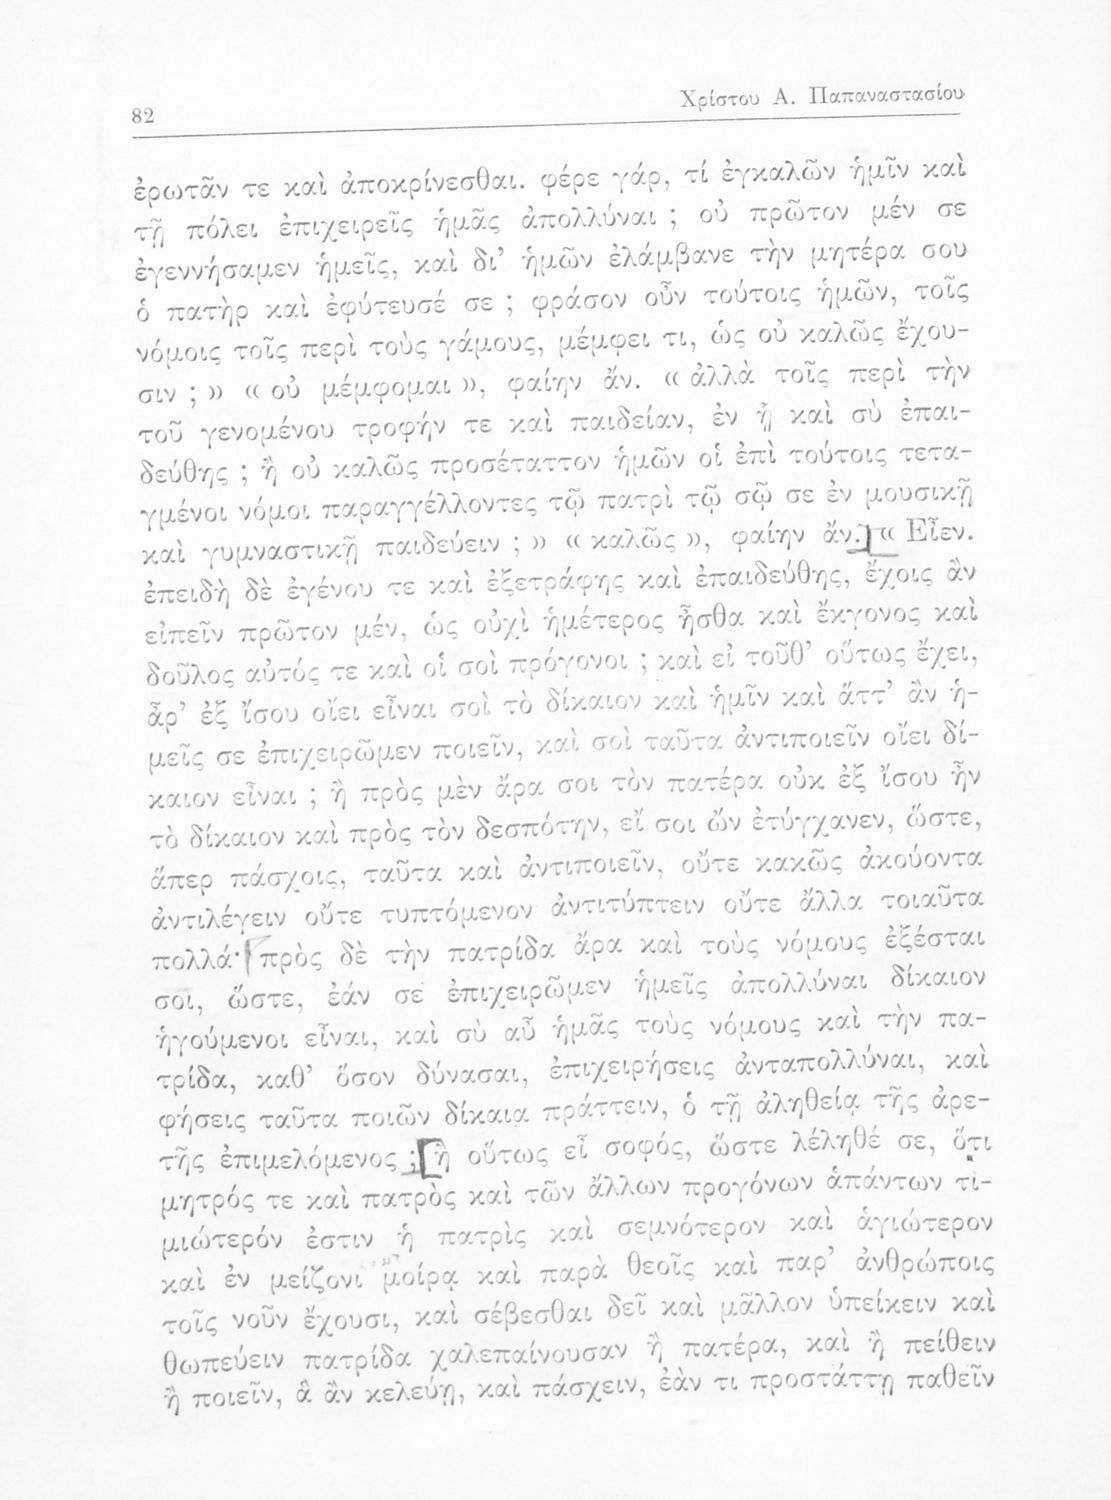 82
Χρίστου Α. Παπαναστασίου
ἐρωτᾶν τε καὶ ἀποκρίνεσθαι. φέρε γάρ, τί ἐγκαλῶν ἡμῖν καὶ
τῇ πόλει ἐπιχειρεῖς ἡμᾶς ἀπολλύναι ; οὐ πρῶτον μέν σε
ἐγεννήσαμεν ἡμεῖς, καὶ δι’ ἡμῶν ἐλάμβανε τὴν μητέρα σου
ὁ πατὴρ καὶ ἐφύτευσέ σε ; φράσον οὖν τούτοις ἡμῶν, τοῖς
νόμοις τοῖς περὶ τοὺς γάμους, μέμφει τι, ὡς οὐ καλῶς ἔχου-
σιν ; » « οὐ μέμφομαι », φαίην ἄν. « ἀλλὰ τοῖς περὶ τὴν
τοῦ γενομένου τροφήν τε καὶ παιδείαν, ἐν ᾗ καὶ σὺ ἐπαι-
δεύθης ; ἢ οὐ καλῶς προσέταττον ἡμῶν οἱ ἐπὶ τούτοις τετα-
γμένοι νόμοι παραγγέλλοντες τῷ πατρὶ τῷ σῷ σε ἐν μουσικῇ
καὶ γυμναστικῇ παιδεύειν ; » « καλῶς », φαίην ἄν.] « Εἶεν.
ἐπειδὴ δὲ ἐγένου τε καὶ ἐξετράφης καὶ ἐπαιδεύθης, ἔχοις ἂν
εἰπεῖν πρῶτον μέν, ὡς οὐχὶ ἡμέτερος ἦσθα καὶ ἔκγονος καὶ
δοῦλος αὐτός τε καὶ οἱ σοὶ πρόγονοι ; καὶ εἰ τοῦθ’ οὕτως ἔχει,
ἆρ’ ἐξ ἴσου οἴει εἶναι σοὶ τὸ δίκαιον καὶ ἡμῖν καὶ ἅττ’ ἂν ἡ-
μεῖς σε ἐπιχειρῶμεν ποιεῖν, καὶ σοὶ ταῦτα ἀντιποιεῖν οἴει δί-
καιον εἶναι ; ἢ πρὸς μὲν ἄρα σοι τὸν πατέρα οὐκ ἐξ ἴσου ἦν
τὸ δίκαιον καὶ πρὸς τὸν δεσπότην, εἴ σοι ὢν ἐτύγχανεν, ὥστε,
ἅπερ πάσχοις, ταῦτα καὶ ἀντιποιεῖν, οὔτε κακῶς ἀκούοντα
ἀντιλέγειν οὔτε τυπτόμενον ἀντιτύπτειν οὔτε ἄλλα τοιαῦτα
πολλά· πρὸς δὲ τὴν πατρίδα ἄρα καὶ τοὺς νόμους ἐξέσται
σοι, ὥστε, ἐάν σε ἐπιχειρῶμεν ἡμεῖς ἀπολλύναι δίκαιον
ἡγούμενοι εἶναι, καὶ σὺ αὖ ἡμᾶς τοὺς νόμους καὶ τὴν πα-
τρίδα, καθ’ ὅσον δύνασαι, ἐπιχειρήσεις ἀνταπολλύναι, καὶ
φήσεις ταῦτα ποιῶν δίκαια πράττειν, ὁ τῇ ἀληθείᾳ τῆς ἀρε-
τῆς ἐπιμελόμενος ; [ἢ οὕτως εἶ σοφός, ὥστε λέληθέ σε, ὅτι
μητρός τε καὶ πατρὸς καὶ τῶν ἄλλων προγόνων ἁπάντων τι-
μιώτερόν ἐστιν ἡ πατρὶς καὶ σεμνότερον καὶ ἁγιώτερον
καὶ ἐν μείζονι μοίρᾳ καὶ παρὰ θεοῖς καὶ παρ’ ἀνθρώποις
τοῖς νοῦν ἔχουσι, καὶ σέβεσθαι δεῖ καὶ μᾶλλον ὑπείκειν καὶ
θωπεύειν πατρίδα χαλεπαίνουσαν ἢ πατέρα, καὶ ἢ πείθειν
ἢ ποιεῖν, ἃ ἂν κελεύῃ, καὶ πάσχειν, ἐάν τι προστάττῃ παθεῖν